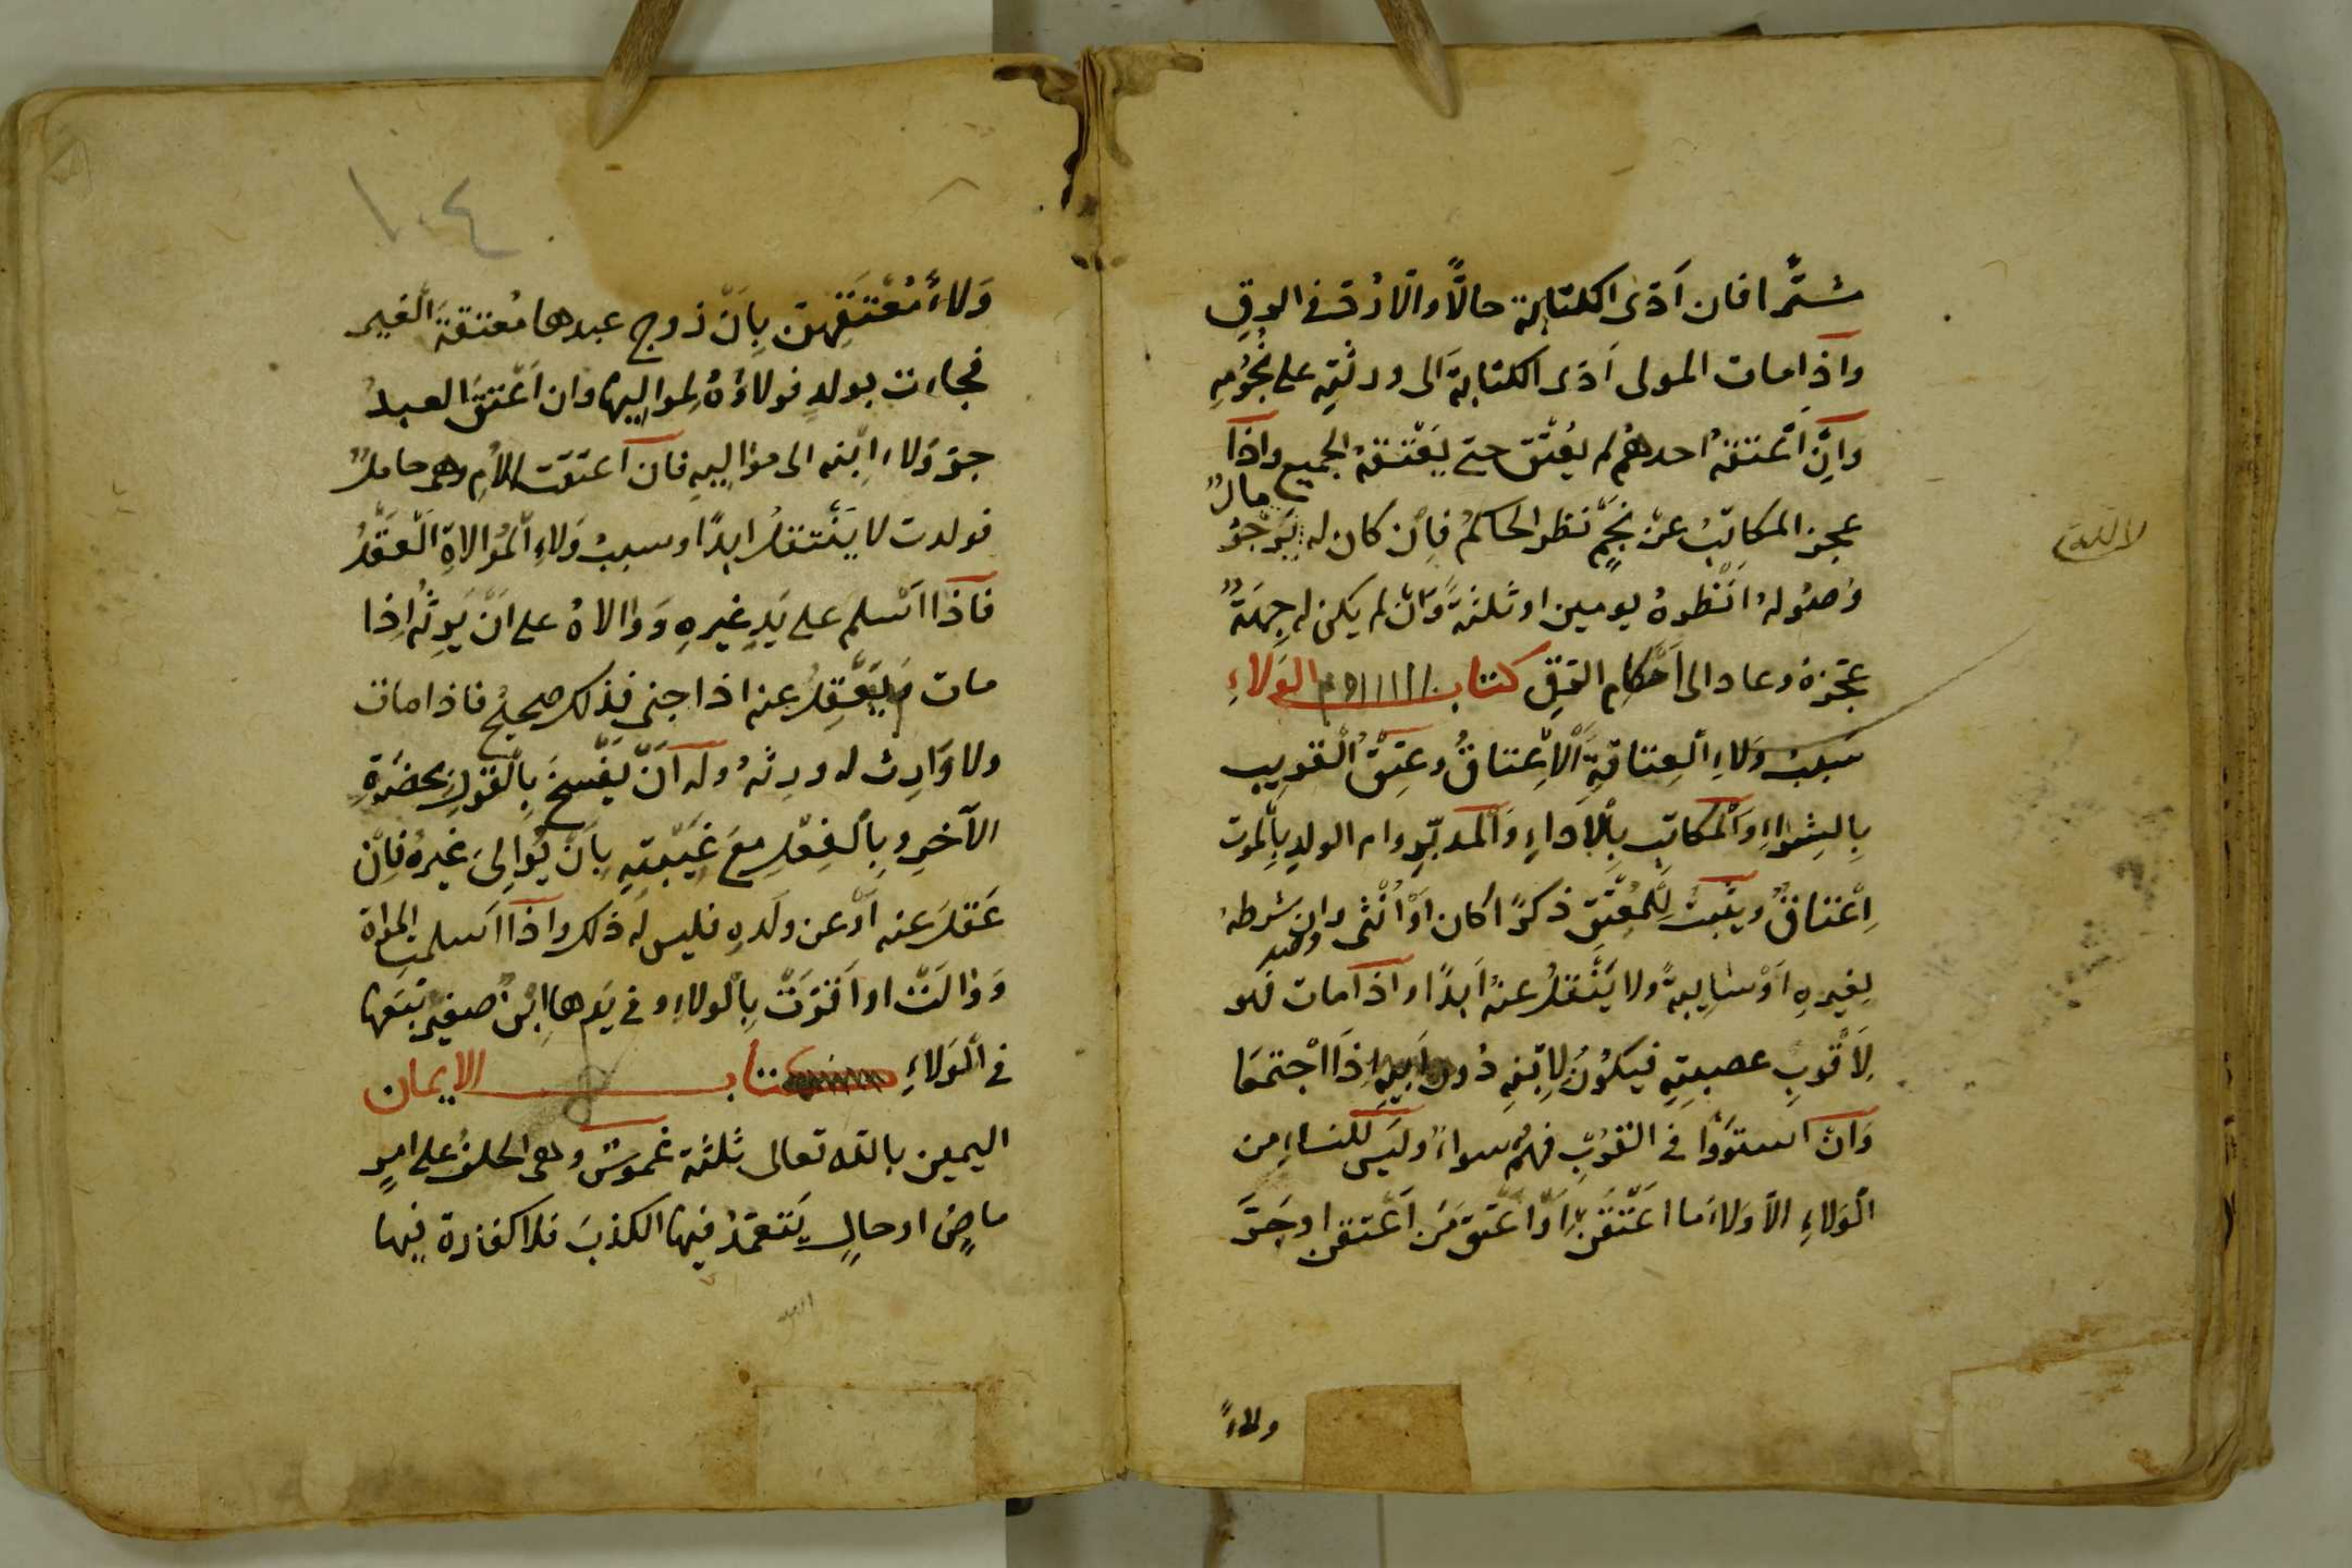 شترا فان ادى الكتابة حالا والا رد في الرق
واذا مات المولى ادى الكتابة الى ورثته على نجومه
وان اعتقه احدهم لم يعتق حتى يعتقه الجميع واذا
عجز المكاتب عن نجم نظر الحاكم فان كان له مال يرجو
وصوله انظره يومين او ثلثة وان لم يكن له جهة
عجزه وعاد الى احكام الرق كتاب الولاء
سبب ولاء العتاقة الاعتاق وعتق القريب
بالشراء والمكاتب بالاداء والمدبر وام الولد بالموت
اعتاق ويثبت للمعتق ذكرا كان او انثى وان شرطه
لغيره او سايبة ولا ينتقل عنه ابدا واذا مات فهو
لاقرب عصبته فيكون لابنه دون ابيه اذا اجتمعا
وان استووا في القرب فهم سواء وليس للنساء من
الولاء الا ولاء ما اعتقن او اعتق من اعتقن او جر
ولاء
١٠٤
ولاء معتقهن بان زوج عبدها معتقة الغير
فجاءت بولد فولاؤه لمواليها وان اعتق العبد
جر ولاء ابنه الى مواليه فان اعتقت الام وهي حامل
فولدت لا ينتقل ابدا وسبب ولاء الموالاة العقد
فاذا اسلم على يد غيره ووالاه على ان يرثه اذا
مات ويعقل عنه اذا جنى فذلك صحيح فاذا مات
ولا وارث له ورثه وله ان يفسخ بالقول بحضرة
الآخر وبالفعل مع غيبته بان يوالى غيره فان
عقل عنه او عن ولده فليس له ذلك واذا اسلمت المراة
ووالت او اقرت بالولاء وفي يدها ابن صغير تبعها
في الولاء كتاب الايمان
اليمين بالله تعالى ثلثة غموس وهي الحلف على امر
ماض او حال يتعمد فيها الكذب فلا كفارة فيها